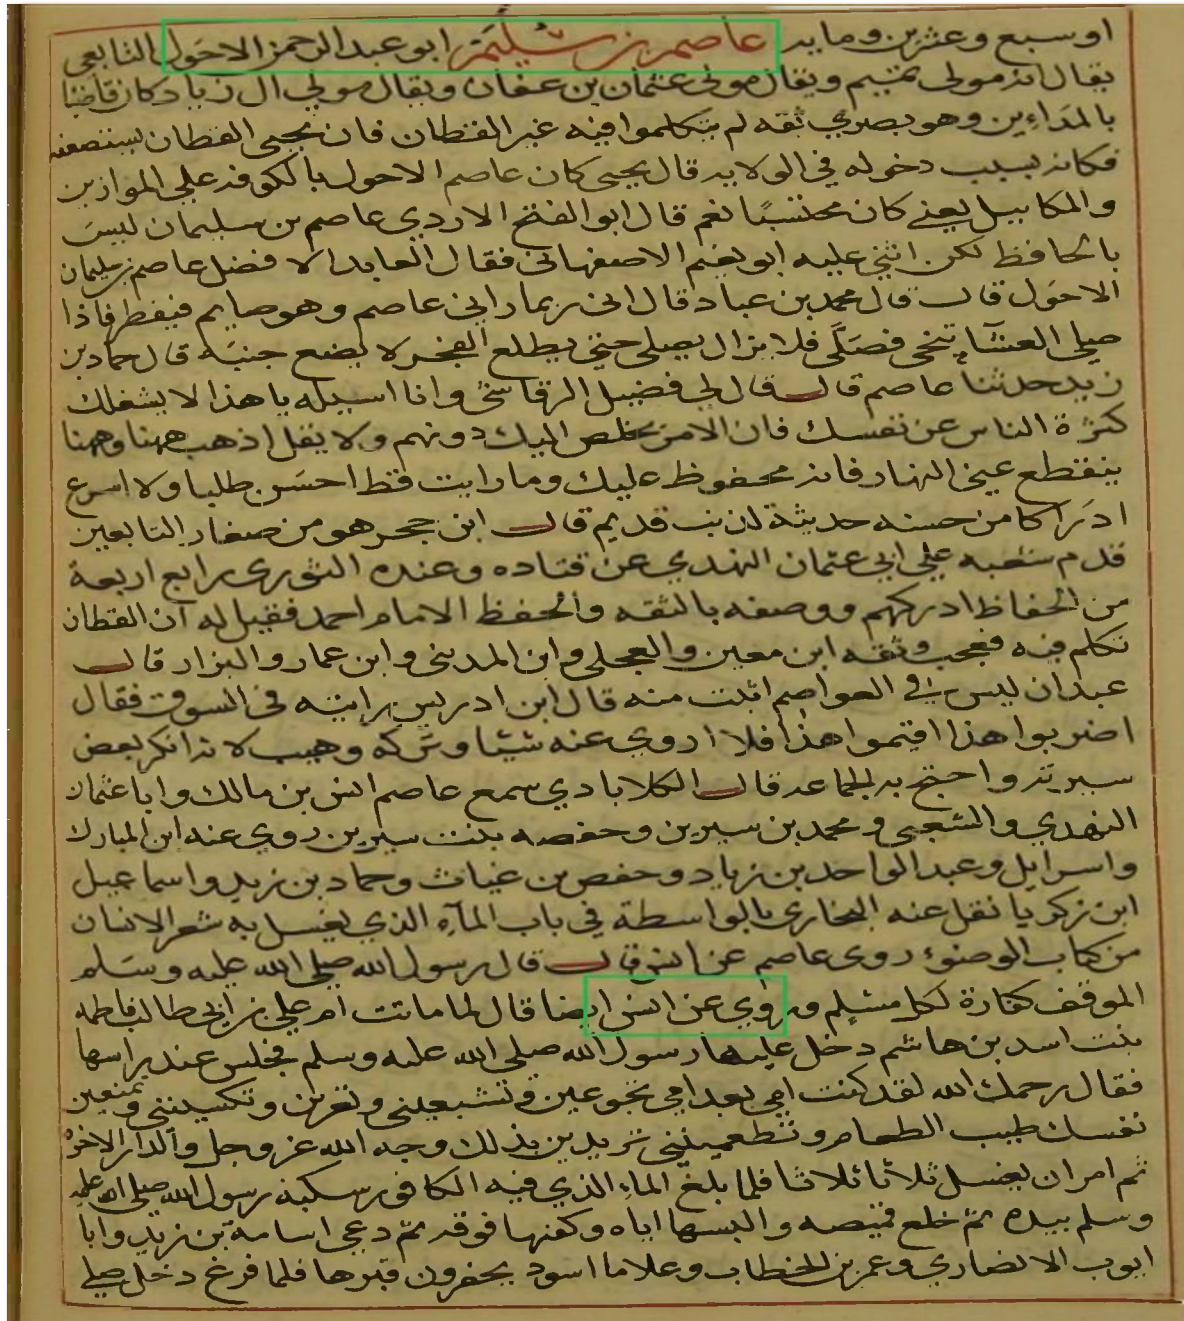 او سبع وعشرين ومايه عاصم بن سليمن ابو عبد الرحمن الاحول التابعي
يقال انه مولى تميم ويقال مولى عثمان بن عفان ويقال مولي ال زياد كان قاضيا
بالمداءين وهو بصري ثقه لم يتكلموا فيه غير القطان فان يحيى القطان يستضعفه
فكانه بسبب دخوله في الولايه قال يحيى كان عاصم الاحول بالكوفه علي الموازين
والمكاييل يعني كان محتسبًا نعم قال ابو الفتح الازدي عاصم بن سليمان ليسَ
بالحافظ لكن اثني عليه ابو نعيم الاصفهاني فقال العابد الافضل عاصم بن سليمان
الاحول قال قال محمد بن عباد قال ابي ربما راني عاصم وهو صايم فيفطر فاذا
صلي العشآء تنحى فصَلَّى فلا يزال يصلي حتي يطلع الفجر لا يضع جنبَه قال حماد بن
زيد حدثنا عاصم قال قال لي فضيل الرقاشي وانا اسيله يا هذا لا يشغلك
كثرة الناس عن نفسك فان الامر يخلص اليك دونهم ولا يقل اذهب ههنا وههنا
ينقطع عني النهار فانه محفوظ عليك وما رايت قط احسَن طلبا ولا اسرع
ادرَاكا من حسنه حديثة لذنب قديم قال ابن حجر هو من صغار التابعين
قدم شعبه علي ابي عثمان النهدي عن قتاده وعنده الثوري رابع اربعة
من الحفاظ ادركهم ووصفه بالثقه والحفظ الامام احمد فقيل له آن القطان
تكلم فيه فعجب وثقه ابن معين والعجلي وابن المديني وابن عمار والبزار قال
عبدان ليس في العواصم اثبت منه قال ابن ادريس رايته في السوق فقال
اضربوا هذا اقيموا هذا فلا اروي عنه شيئا وتركه وهيب لانه انكر بعض
سيرته واحتج به الجماعه قال الكلابادي سمع عاصم انس بن مالك وابا عثمان
النهدي والشعبي ومحمد بن سيرين وحفصه بنت سيرين روي عنه ابن المبارك
واسرايل وعبد الواحد بن زياد وحفص بن غياث وحماد بن زيد واسماعيل
ابن زكريا نقل عنه البخاري بالواسطة في باب المآء الذي يغسل به شعر الانسان
من كتاب الوضوء روى عاصم عن انس قال قال رسول الله صلي الله عليه وسَلم
الموقف كفارة لكل مسْلم وروي عن انس ايضا قال لما ماتت ام علي بن ابي طالب فاطمه
بنت اسد بن هاشم دخل عليها رسول الله صلي الله عليه وسلم فجلس عند راسها
فقال رحمك الله لقد كنت امي بعد امي تجوعين وتشبعيني وتعرين وتكسينني وتمنعين
نفسك طيب الطعام وتطعمينني تريدين بذلك وجه الله عز وجل والدار الاخرة
ثم امر ان يغسل ثلاثا ثلاثا فلما بلغ الماء الذي فيه الكافور سكبه رسول الله صلي الله عليه
وسلم بيده ثم خلع قميصه والبسها اياه وكفنها فوقه ثم دعي اسامة بن زيد وابا
ايوب الانصاري وعمر بن الخطاب وغلاما اسود يحفرون قبرها فلما فرغ دخل صلي